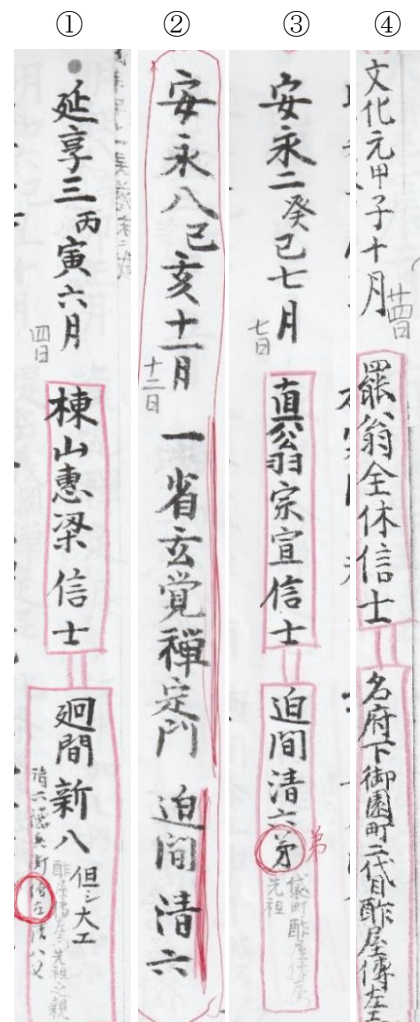 ① ② ③ ④
延享三丙寅六月
四日
棟山惠梁信士
廻間新八
但シ大工
酢屋傳左ヱ門先祖之親
安永八己亥十一月
十二日
一省玄覚禅定門
迫間清六
安永二癸巳七月
七日
直翁宗宣信士
迫間清六弟
弟
先祖
文化元甲子十月
廿四日
翁全休信士
名府下御園町二代目酢屋傳左